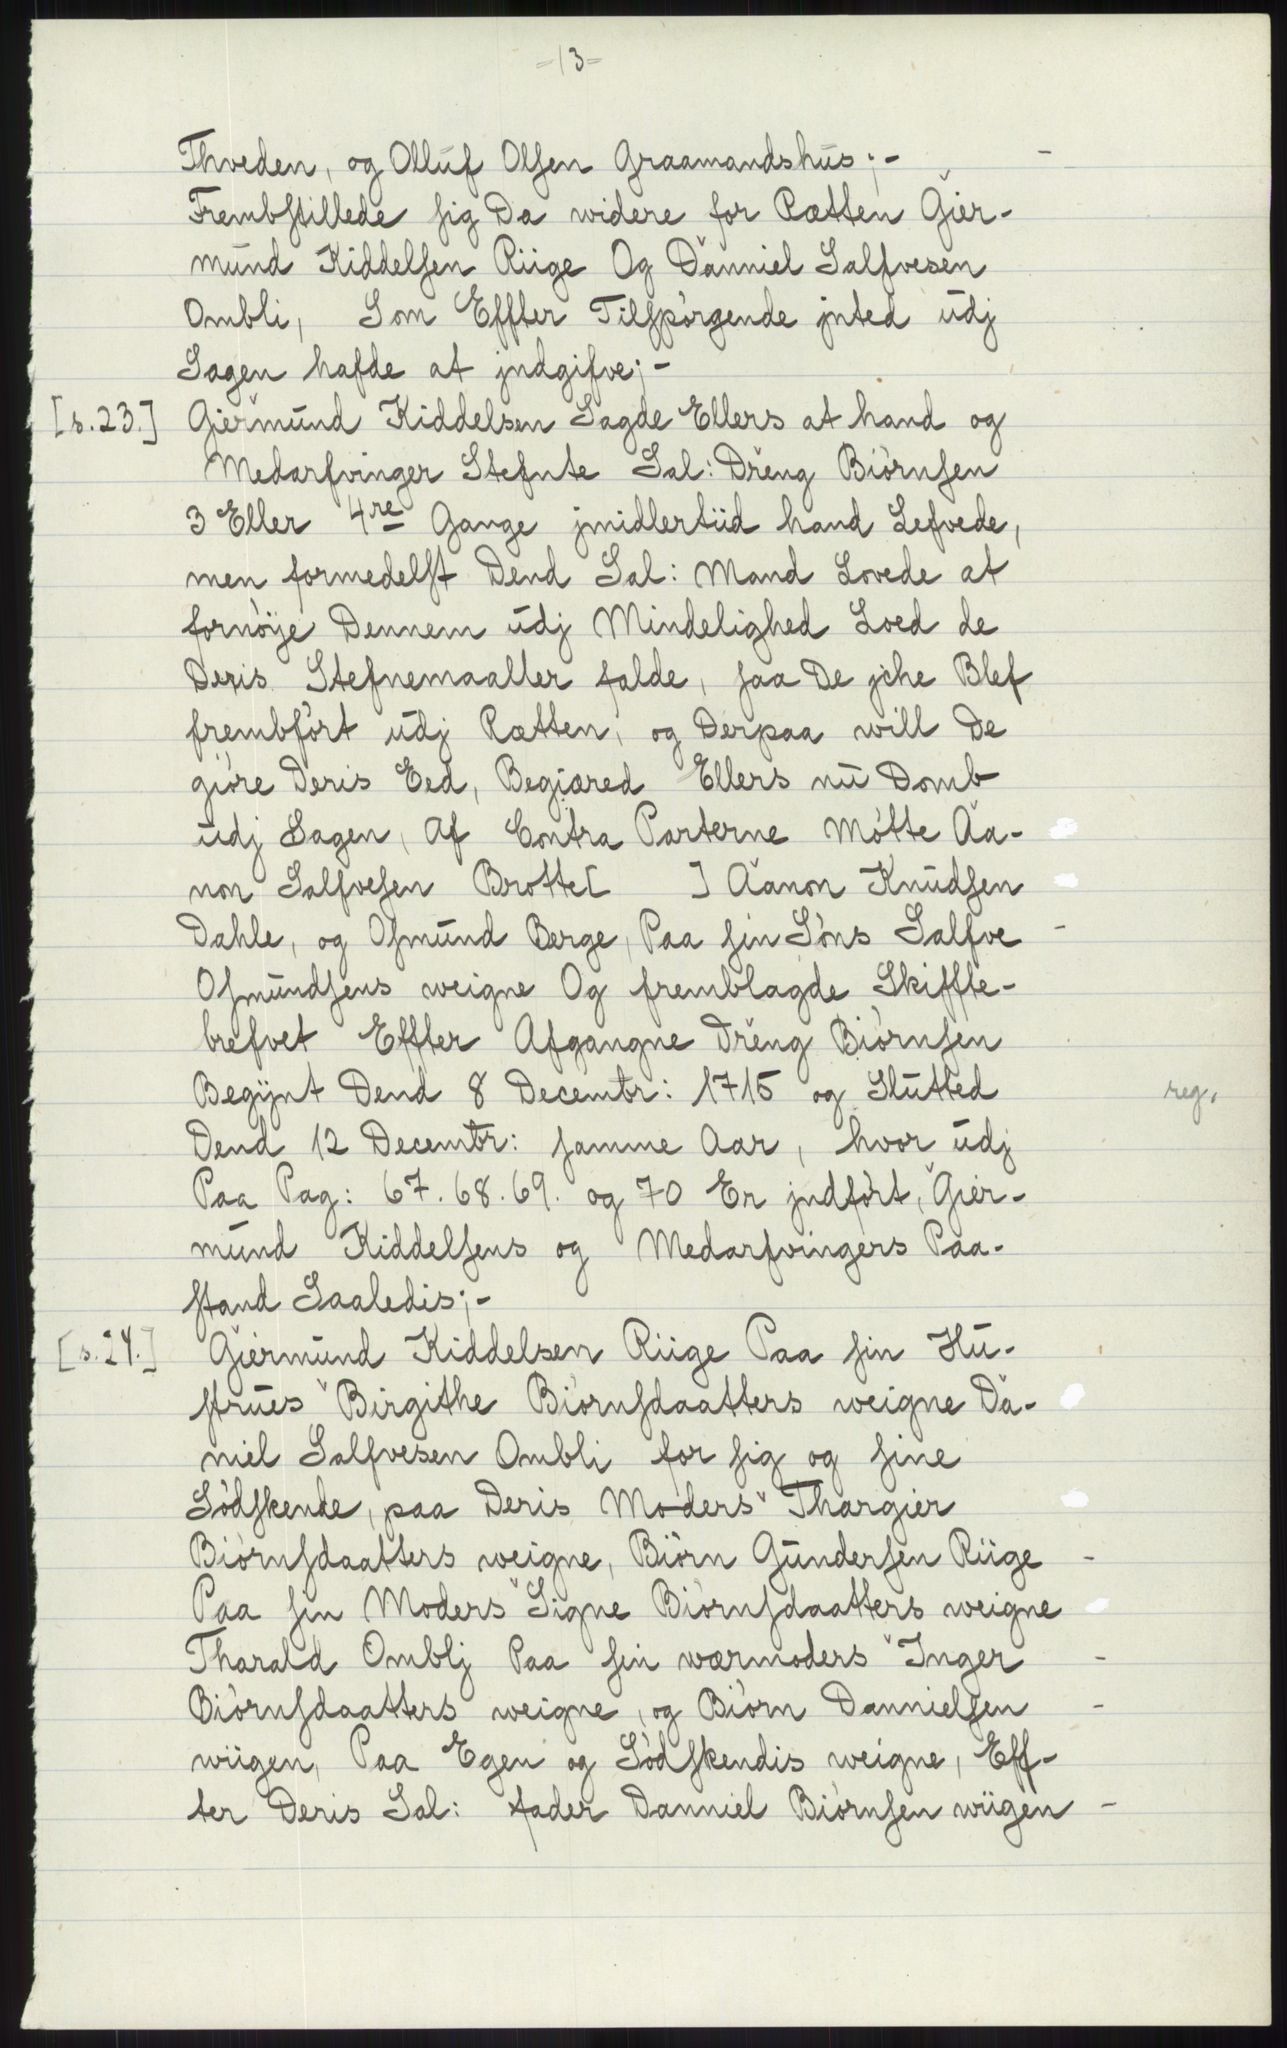 -13-
Thveden, og Olluf Olsen Graamandshus;-
Frembstillede sig Da widere for Rætten Gier-
mund Kiddelsen Riige Og Danniel Salfvesen
Ombli, Som Effter Tilspörgende jnted udj
Sagen hafde at jndgifve;-
[s.23.] Giermund Kiddelsen Sagde Ellers at hand og
Medarfvinger Stefnte Sal: Dreng Biörnsen
3 Eller 4re Gange jmidlertiid hand Lefvede,
men formedelst Dend Sal: Mand Lovede at
fornöÿe Dennem udj Mindelighed Loed de
Deris Stefnemaaller falde, saa De jche Blef
frembfört udj Rætten, og Derpaa will De
giöre Deris Eed, Begiæred Ellers nu Domb
udj Sagen, Af Contra Parterne Mötte Aa-
non Salfvesen Brotte[ ] Aanon Knudsen
Dahle, og Osmund Berge, Paa sin Söns Salfve
Osmundsens weigne Og fremblagde Skiffte-
brefvet Effter Afgangne Dreng Biörnsen
Begÿnt Dend 8 Decembr: 1715 og Slutted
reg.
Dend 12 Decembr: samme Aar, hvor udj
Paa Pag: 67.68.69. og 70 Er jndfört, Gier-
mund Kiddelsens og Medarfvingers Paa-
stand Saaledis;-
[s.24.] Giermund Kiddelsen Riige Paa sin Hu-
strues Birgithe Biörnsdaatters weigne Da-
niel Salfvesen Ombli for sig og sine
Södskende, paa Deris Moders Thargier
Biörnsdaatters weigne, Biörn Gundersen Riige
Paa sin Moders Signe Biörnsdaatters weigne
Tharald Omblj Paa sin wærmoders Inger
Biörnsdaatters weigne, og Biörn Dannielsen
wiigen, Paa Egen og Södskendis weigne, Eff-
ter Deris Sal: fader Danniel Biörnsen wiigen